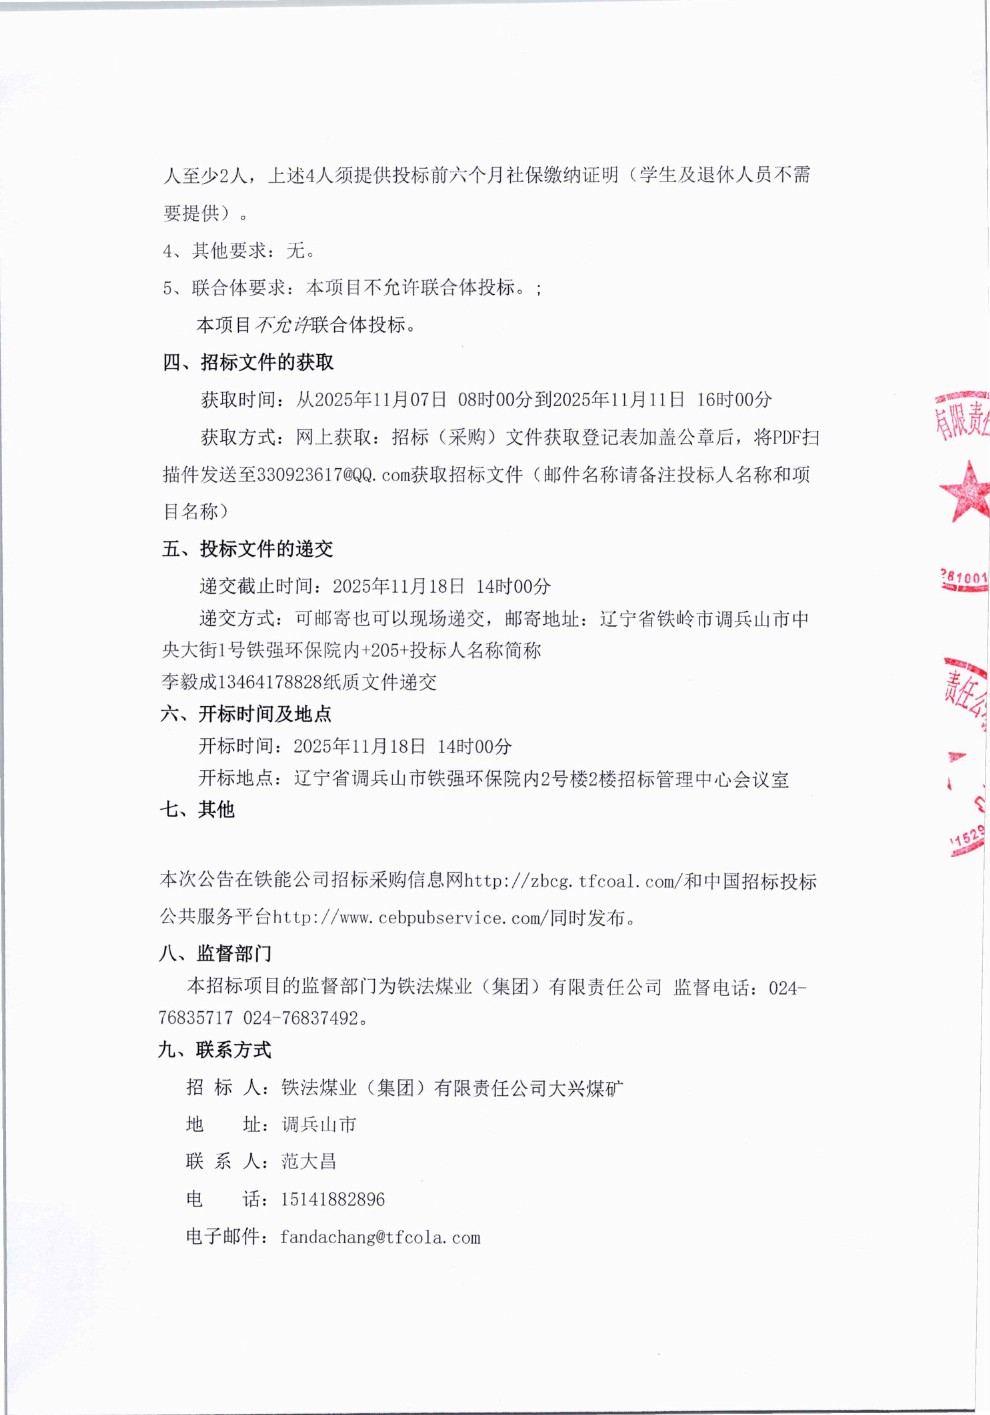 人至少2人，上述4人须提供投标前六个月社保缴纳证明（学生及退休人员不需
要提供）。
4、其他要求：无。
5、联合体要求：本项目不允许联合体投标。;
本项目不允许联合体投标。
四、招标文件的获取
获取时间：从2025年11月07日 08时00分到2025年11月11日 16时00分
获取方式：网上获取：招标（采购）文件获取登记表加盖公章后，将PDF扫
描件发送至330923617@QQ.com获取招标文件（邮件名称请备注投标人名称和项
目名称）
五、投标文件的递交
递交截止时间：2025年11月18日 14时00分
递交方式：可邮寄也可以现场递交，邮寄地址：辽宁省铁岭市调兵山市中
央大街1号铁强环保院内+205+投标人名称简称
李毅成13464178828纸质文件递交
六、开标时间及地点
开标时间：2025年11月18日 14时00分
开标地点：辽宁省调兵山市铁强环保院内2号楼2楼招标管理中心会议室
七、其他
本次公告在铁能公司招标采购信息网http://zbcg.tfcoal.com/和中国招标投标
公共服务平台http://www.cebpubservice.com/同时发布。
八、监督部门
本招标项目的监督部门为铁法煤业（集团）有限责任公司 监督电话：024-
76835717 024-76837492。
九、联系方式
招 标 人：铁法煤业（集团）有限责任公司大兴煤矿
地 址：调兵山市
联 系 人：范大昌
电 话：15141882896
电子邮件：fandachang@tfcola.com
有限责任
281001
责任公
11529